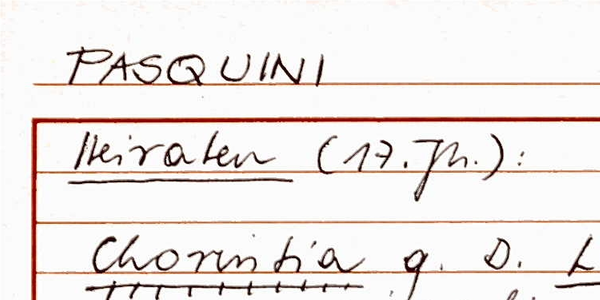 PASQUINI
Heiraten (17. Jh.):
Chorintia q. D. L